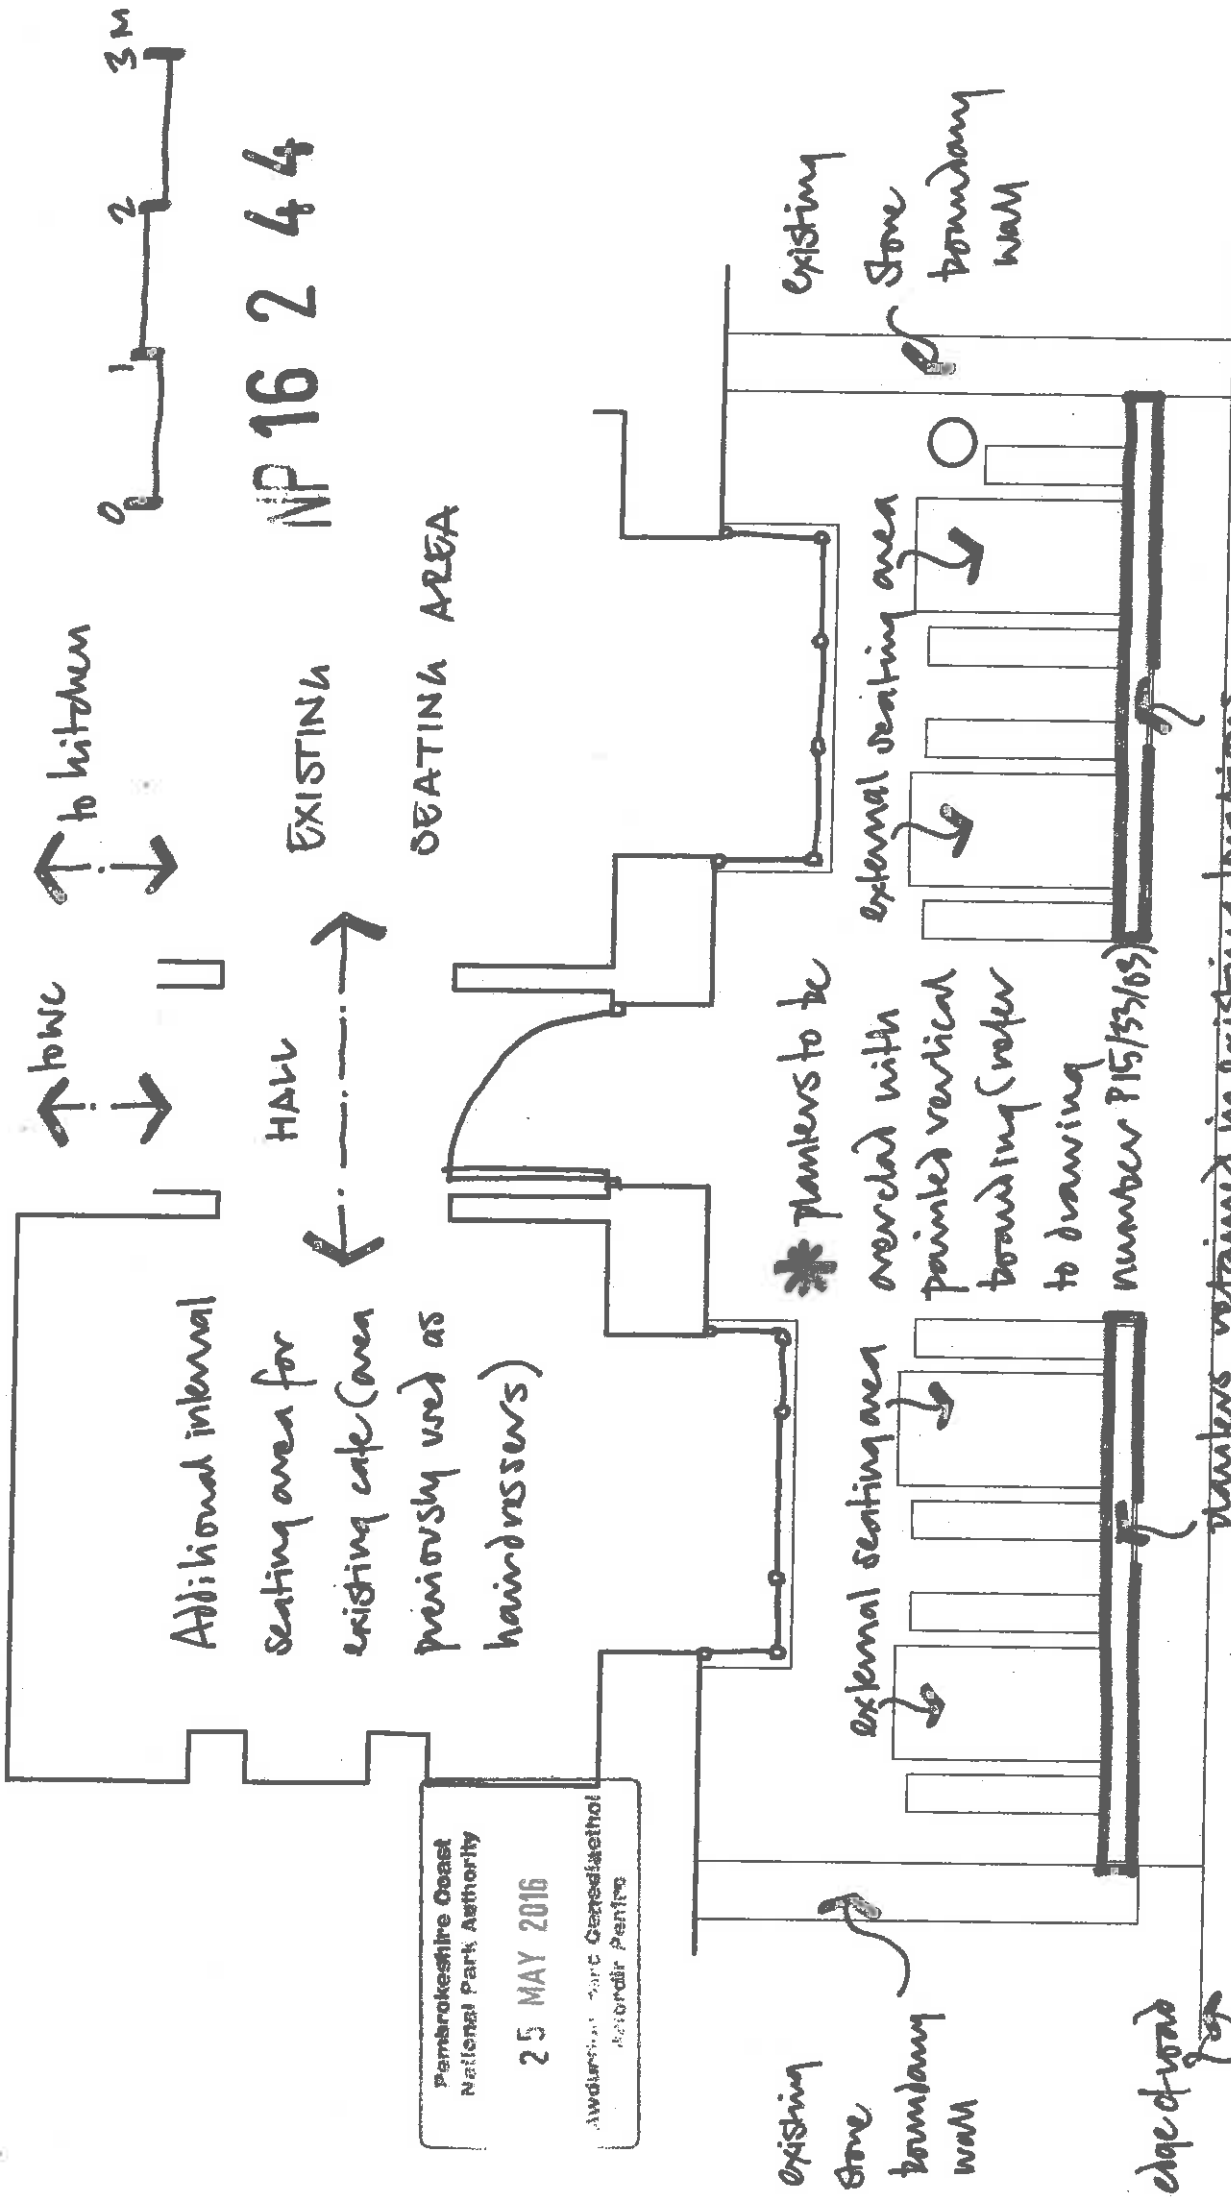 0 1 2 3M
NP 16 2 44
to WC
to kitchen
HALL
EXISTING
SEATING AREA
Additional internal
seating area for
existing cafe (area
previously used as
hairdressers)
Pembrokeshire Coast
National Park Authority
25 MAY 2016
Parc Genedlaethol
Penfro
existing
stone
boundary
wall
external seating area
✱ planters to be
overclad with
painted vertical
boarding (refer
to drawing
number P15/33/03)
external seating area
existing
stone
boundary
wall
edge of road
planters retained in existing